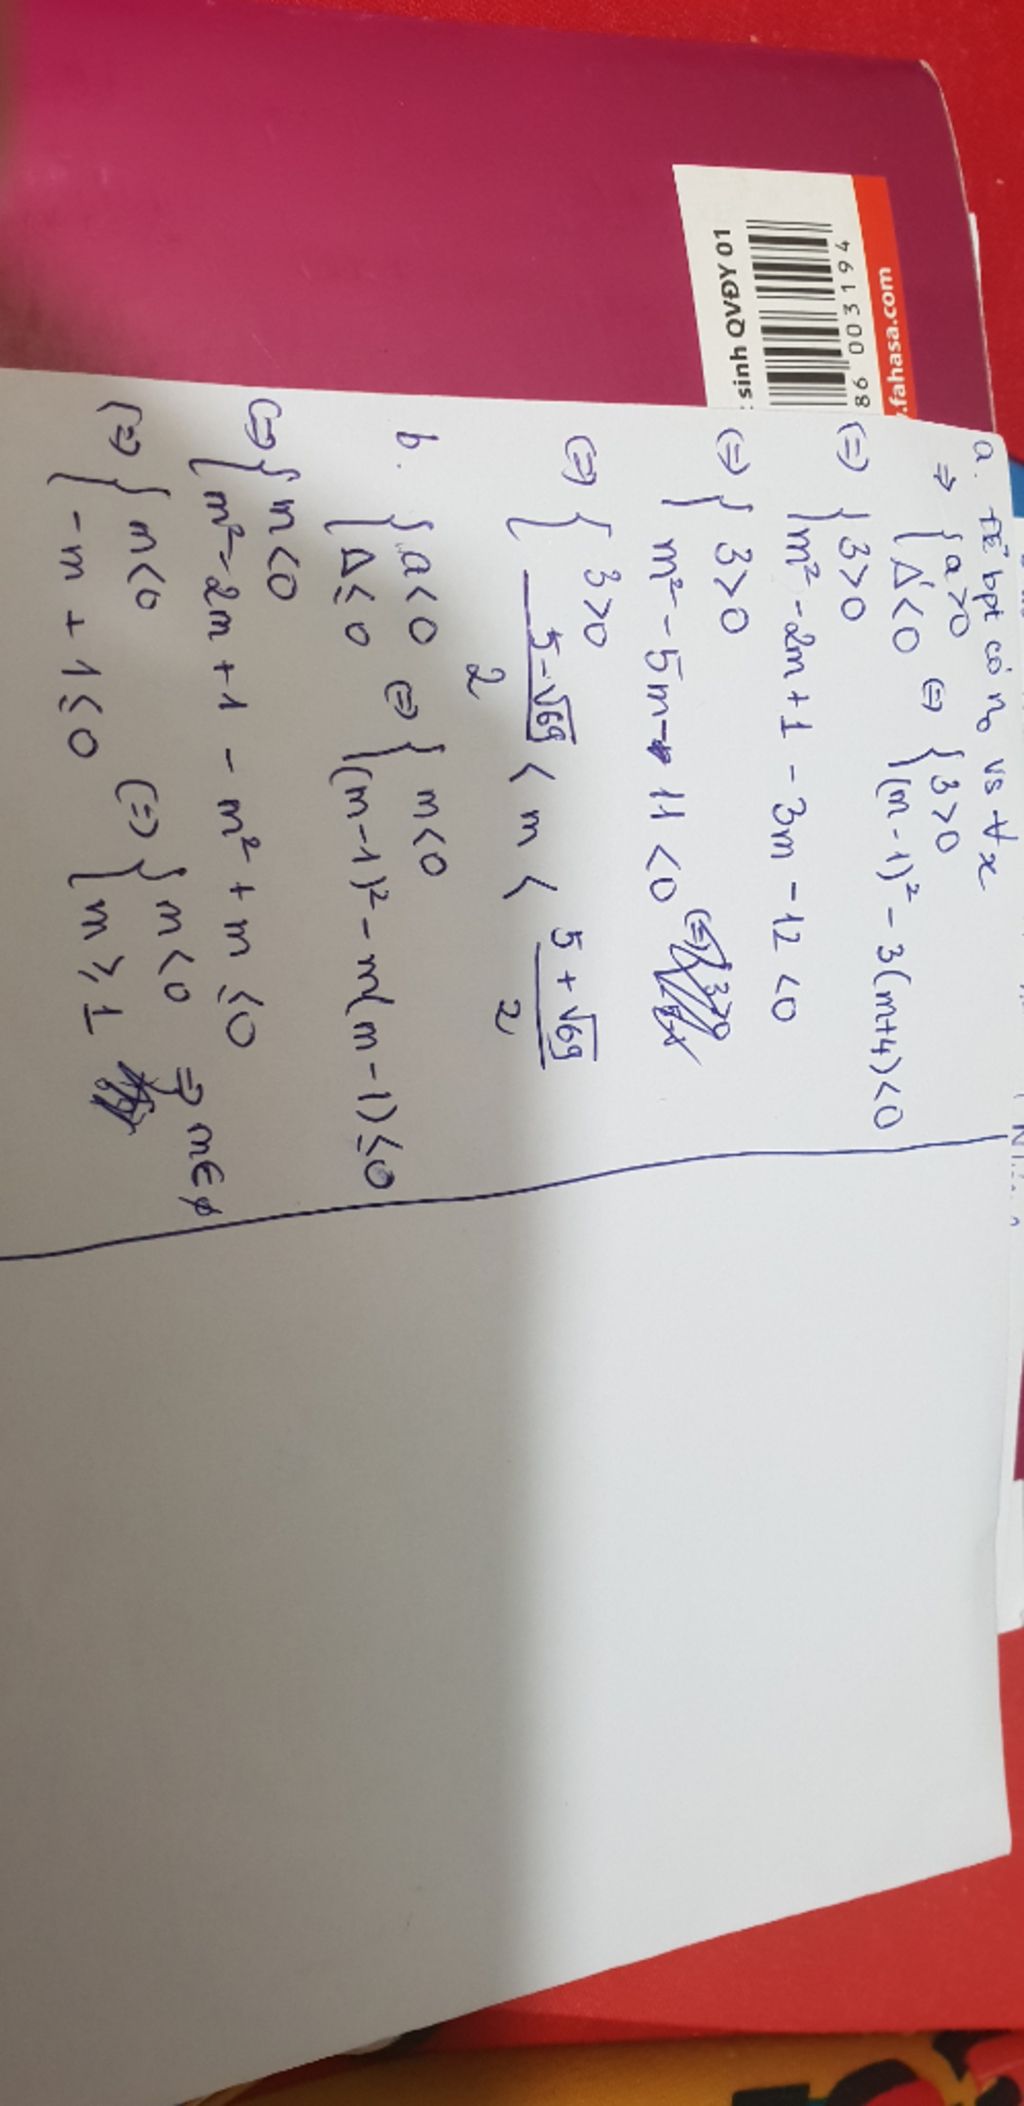 : sinh QVĐY 01
86 003194
.fahasa.com
a. Để bpt có n₀ vs ∀ x
⇒ { a>0
Δ' < 0 ⇔ { 3>0
(m-1)² - 3(m+4) < 0
⇔ { 3>0
m² - 2m + 1 - 3m - 12 < 0
⇔ { 3>0
m² - 5m - 11 < 0
⇔ { 3>0
(5-√69)/2 < m < (5+√69)/2
b. { a<0
Δ ≤ 0 ⇔ { m<0
(m-1)² - m(m-1) ≤ 0
⇔ { m<0
m² - 2m + 1 - m² + m ≤ 0
⇔ { m<0
-m + 1 ≤ 0 ⇔ { m<0
m ≥ 1 ⇒ m∈∅